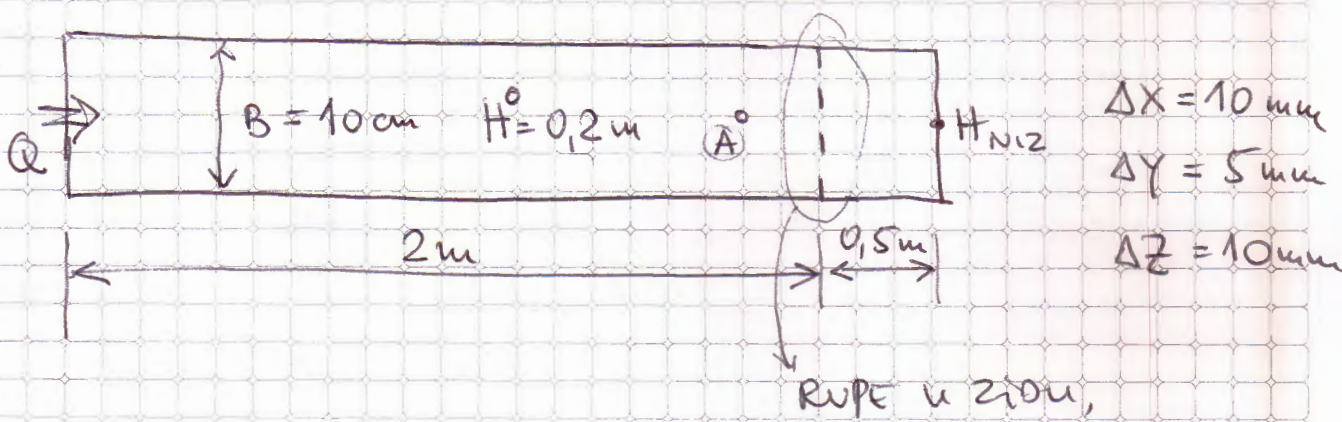 Q
B = 10 cm
H° = 0,2 m
A°
H NIZ
ΔX = 10 mm
ΔY = 5 mm
ΔZ = 10 mm
2 m
0,5 m
RUPE U ZIDU,